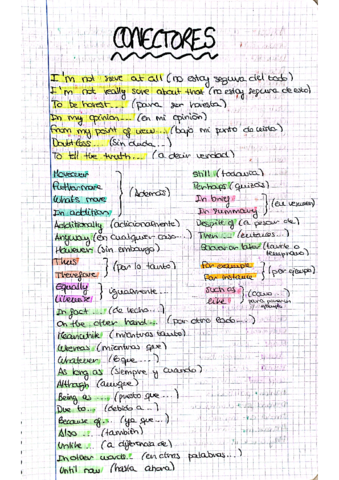 CONECTORES
I'm not sure at all (no estoy segura del todo)
I'm not really sure about that (no estoy segura de esto)
To be honest... (para ser honesta)
In my opinion... (en mi opinión)
From my point of view... (bajo mi punto de vista)
Doubtless... (sin duda...)
To tell the truth... (a decir verdad)
Moreover
Furthermore
What's more
In addition
(Además)
Additionally (adicionalmente)
Anyway (en cualquier caso...)
However (sin embargo)
Thus
Therefore
(por lo tanto)
Equally
Likewise
Igualmente...
In fact... (de hecho...)
On the other hand... (por otro lado...)
Meanwhile (mientras tanto)
Whereas (mientras que)
Whatever (lo que...)
As long as (siempre y cuando)
Although (aunque)
Being as... (puesto que...)
Due to... (debido a...)
Because of... (ya que...)
Also... (también)
Unlike... (a diferencia de)
In other words... (en otras palabras...)
Until now (hasta ahora)
Still (todavía)
Perhaps (quizás)
In brief
In summary
(en resumen)
Despite of (a pesar de)
Then... (entonces...)
Sooner or later (tarde o temprano)
For example
For instance
(por ejemplo)
Such as
like
(como...